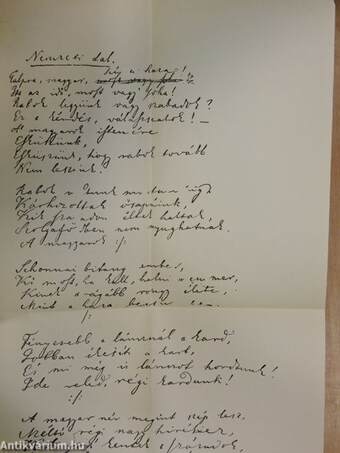 Nemzeti dal.
hí a haza!
Talpra, magyar, most vagy soha!
Itt az idő, most vagy soha!
Rabok legyünk vagy szabadok?
Ez a kérdés, válasszatok! –
A magyarok istenére
Esküszünk,
Esküszünk, hogy rabok tovább
Nem leszünk!
Rabok voltunk mostanáig,
Kárhozottak ősapáink,
Kik szabadon éltek haltak,
Szolgaföldben nem nyughatnak.
A magyarok :/:
Sehonnai bitang ember,
Ki most, ha kell, halni nem mer,
Kinek drágább rongy élete,
Mint a haza becsülete.
:/:
Fényesebb a láncnál a kard,
Jobban ékesíti a kart,
És mi mégis láncot hordunk!
Ide veled, régi kardunk!
:/:
A magyar név megint szép lesz,
Méltó régi nagy híréhez,
kentek a századok,
Antikvárium.hu
www.antikvarium.hu